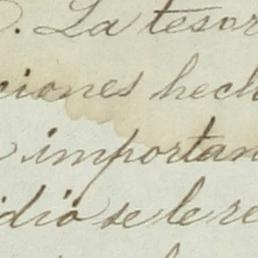 . La tesor
ciones hech
importan
idió se le re